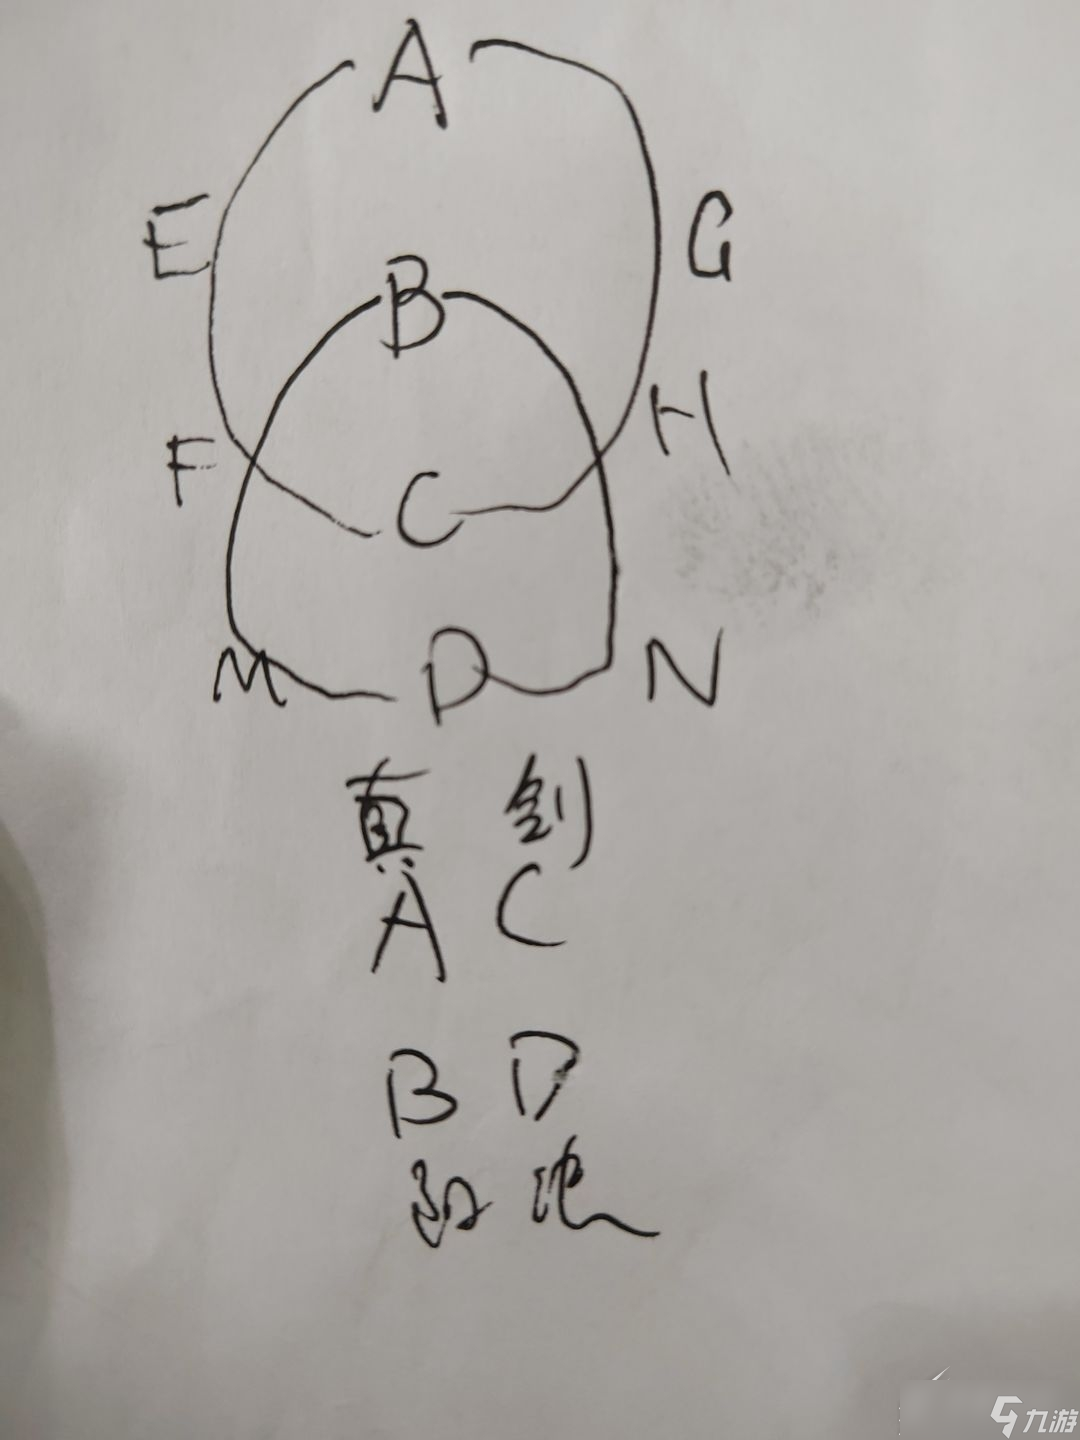 A
E G
B
F H
C
M D N
真 剑
A C
B D
九游